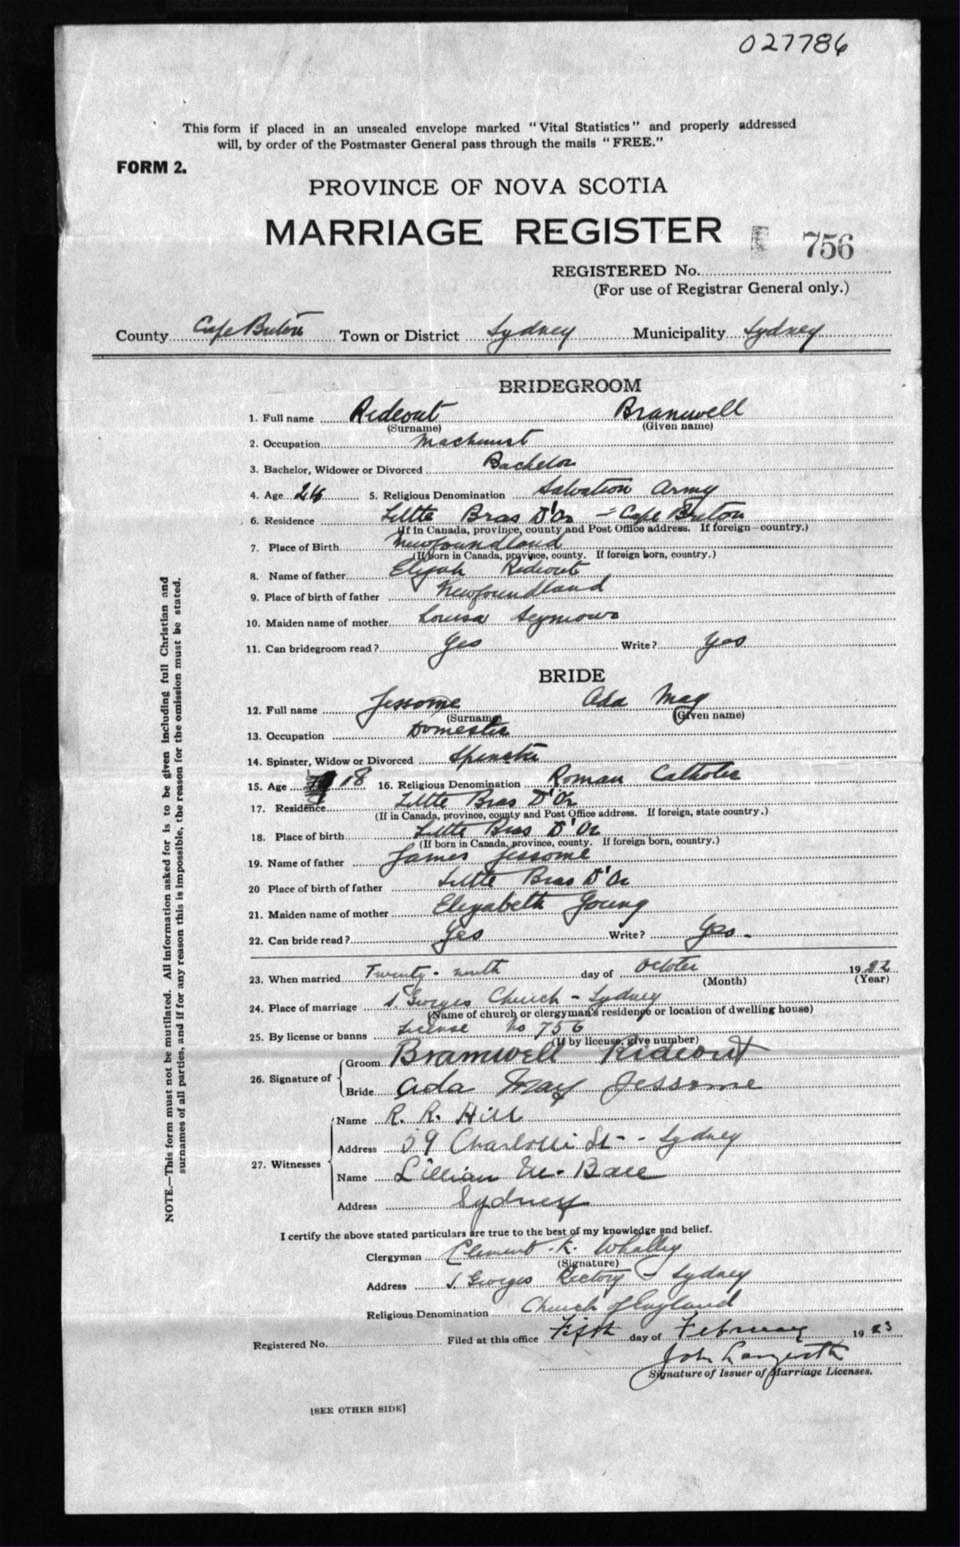 027786
This form if placed in an unsealed envelope marked "Vital Statistics" and properly addressed
will, by order of the Postmaster General pass through the mails "FREE."
FORM 2.
PROVINCE OF NOVA SCOTIA
MARRIAGE REGISTER
756
REGISTERED No.
(For use of Registrar General only.)
County Cape Breton Town or District Sydney Municipality Sydney
BRIDEGROOM
1. Full name Rideout Bramwell
(Surname) (Given name)
2. Occupation Machinist
3. Bachelor, Widower or Divorced Bachelor
4. Age 5. Religious Denomination Salvation Army
6. Residence Little Bras D'Or - Cape Breton
(If in Canada, province, county and Post Office address. If foreign—country.)
7. Place of Birth Newfoundland
(If born in Canada, province, county. If foreign born, country.)
8. Name of father Elijah Rideout
9. Place of birth of father Newfoundland
10. Maiden name of mother Louisa Seymour
11. Can bridegroom read? Yes Write? Yes
BRIDE
12. Full name Jessome Ada May
(Surname) (Given name)
13. Occupation Domestic
14. Spinster, Widow or Divorced Spinster
15. Age 18 16. Religious Denomination Roman Catholic
17. Residence Little Bras D'Or
(If in Canada, province, county and Post Office address. If foreign, state country.)
18. Place of birth Little Bras D'Or
(If born in Canada, province, county. If foreign born, country.)
19. Name of father James Jessome
20 Place of birth of father Little Bras D'Or
21. Maiden name of mother Elizabeth Young
22. Can bride read? Yes Write? Yes
23. When married Twenty-ninth day of October 1922
(Month) (Year)
24. Place of marriage S. Georges Church - Sydney
(Name of church or clergyman's residence or location of dwelling house)
25. By license or banns License No 756
(If by license, give number)
26. Signature of
Groom Bramwell Rideout
Bride Ada May Jessome
27. Witnesses
Name R. R. Hill
Address 59 Charlotte St - Sydney
Name Lillian
Address Sydney
I certify the above stated particulars are true to the best of my knowledge and belief.
Clergyman Clement K. Whalley
(Signature)
Address S. Georges Rectory - Sydney
Religious Denomination Church of England
Registered No. Filed at this office Fifth day of February 1923
John
Signature of Issuer of Marriage Licenses.
[SEE OTHER SIDE]
NOTE.—This form must not be mutilated. All information asked for is to be given including full Christian and
surnames of all parties, and if for any reason this is impossible, the reason for the omission must be stated.